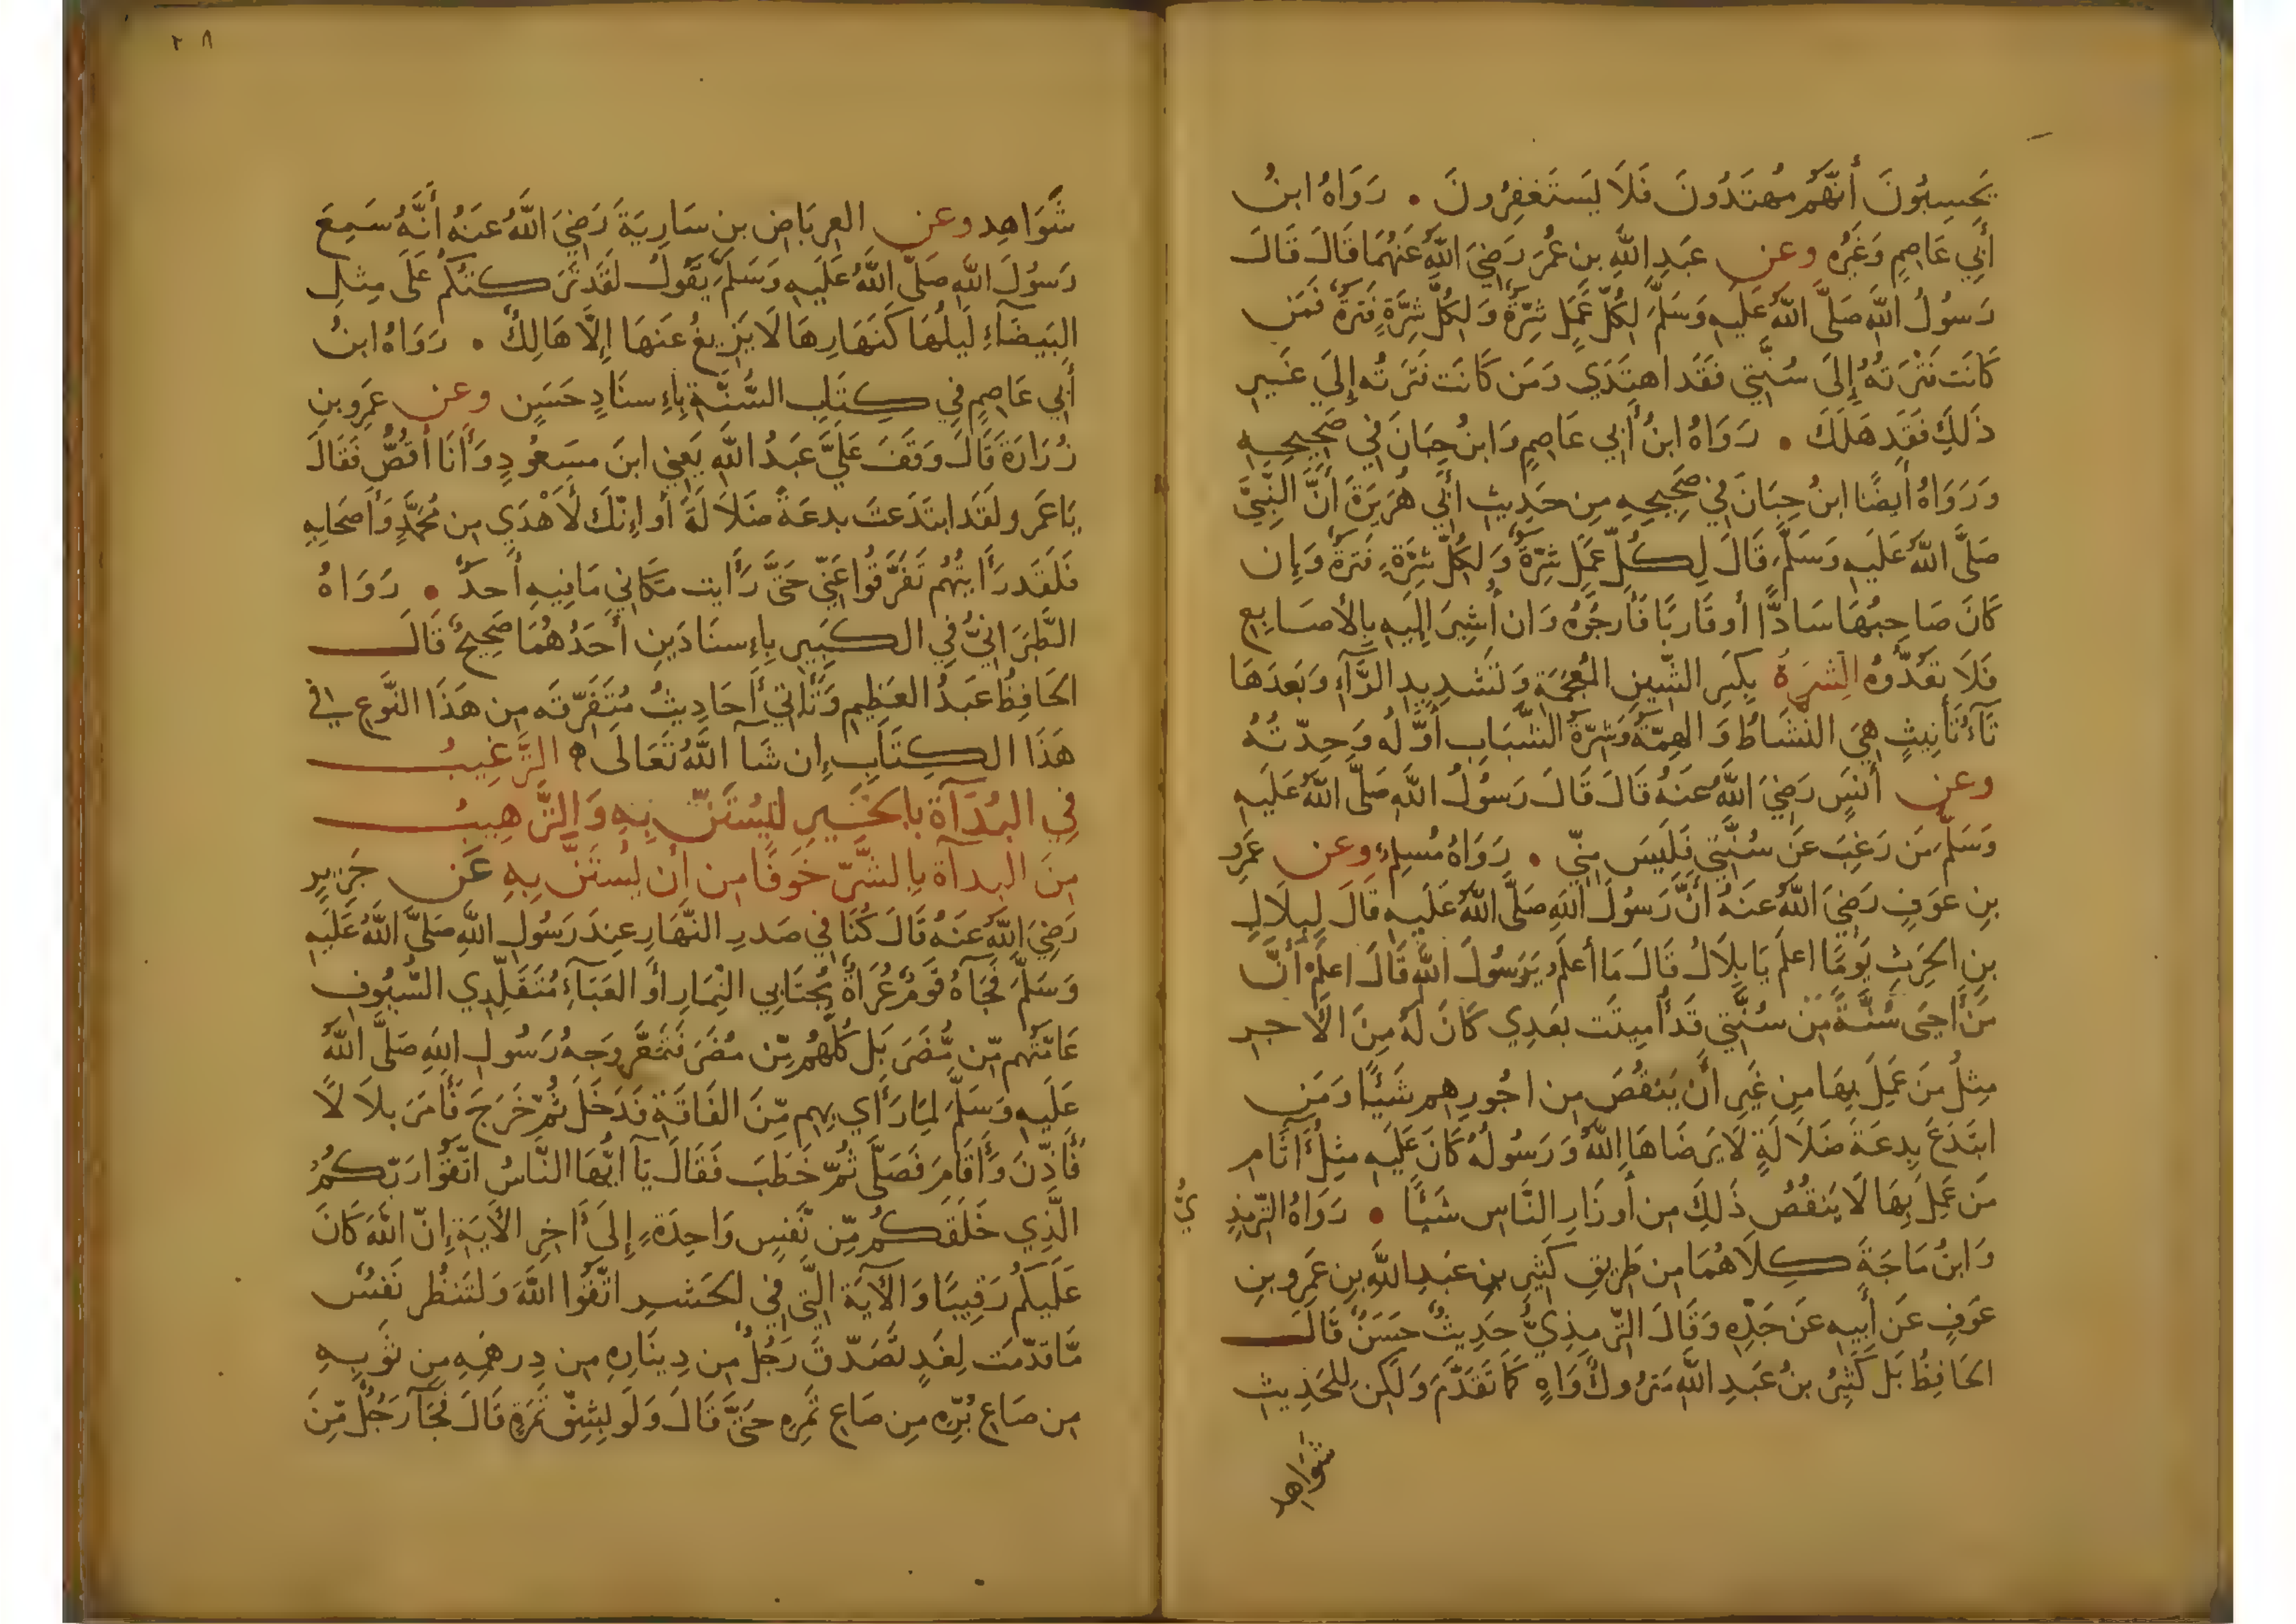 يَحسِبُونَ أَنَّهُم مُهتَدُونَ فَلَا يَستَغفِرُونَ . رَوَاهُ ابنُ
أَبِي عَاصِمٍ وَغَيرُه وعن عَبدِ اللَّهِ بنِ عُمَرَ رَضِيَ اللَّهُ عَنهُمَا قَالَ قَالَ
رَسُولُ اللَّهِ صَلَّى اللَّهُ عَلَيهِ وَسَلَّمَ لِكُلِّ عَمَلٍ شِرَّةٌ وَلِكُلِّ شِرَّةٍ فَترَةٌ فَمَن
كَانَت فَترَتُهُ إِلَى سُنَّتِي فَقَد اهتَدَي وَمَن كَانَت فَترَتُه إِلَي غَيرِ
ذَلِكَ فَقَد هَلَكَ . رَوَاهُ ابنُ أَبِي عَاصِمٍ وَابنُ حِبَانَ فِي صَحِيحِهِ
وَرَوَاهُ أَيضًا ابنُ حِبَانَ فِي صَحِيحِهِ مِن حَدِيثِ أَبِي هُرَيرَةَ أَنَّ النَّبِيَّ
صَلَّى اللَّهُ عَلَيهِ وَسَلَّمَ قَالَ لِكُلِّ عَمَلٍ شِرَّةٌ وَلِكُلِّ شِرَّةٍ فَترَةٌ وَإِن
كَانَ صَاحِبُهَا سَادًّا أَو قَارَبًا فَارجُوهُ وَان أُشِيرَ إِلَيهِ بِالأَصَابِعِ
فَلَا تَعُدُّوهُ الشِرَةُ بِكَسرِ الشِّينِ المُعجَمَةِ وَتَشدِيدِ الرَّآءِ وَبَعدَهَا
تَآءُ تَأنِيثٍ هِيَ النَّشَاطُ وَالهِمَّةُ وَشِرَّةُ الشَّبَابِ أَوَّلُه وَحِدَّتُهُ
وعن أَنَسٍ رَضِيَ اللَّهُ عَنهُ قَالَ قَالَ رَسُولُ اللَّهِ صَلَّى اللَّهُ عَلَيهِ
وَسَلَّمَ مَن رَغِبَ عَن سُنَّتِي فَلَيسَ مِنِّي . رَوَاهُ مُسلِم وعن عَمرِو
بنِ عَوفٍ رَضِيَ اللَّهُ عَنهُ أَنَّ رَسُولَ اللَّهِ صَلَّى اللَّهُ عَلَيهِ قَالَ لِبِلَالِ
بنِ الحَرِثِ يَومًا اعلَم يَا بِلَالُ قَالَ مَا أَعلَمُ يَرَسُولَ اللَّهِ قَالَ اعلَم أَنَّ
مَن أَحيَى سُنَّةً مِن سُنَّتِي قَد أُمِيتَت بَعدِي كَانَ لَهُ مِنَ الأَجرِ
مِثلُ مَن عَمِلَ بِهَا مِن غَيرِ أَن يَنقُصَ مِن اجُورِهِم شَيئًا وَمَنِ
ابتَدَعَ بِدعَةَ ضَلَالَةٍ لَا يَرضَاهَا اللَّهُ وَرَسُولُهُ كَانَ عَلَيهِ مِثلُ آثَامِ
مَن عَمِلَ بِهَا لَا يَنقُصُ ذَلِكَ مِن أَوزَارِ النَّاسِ شَيئًا . رَوَاهُ التِّرمِذِيُّ
وَابنُ مَاجَةَ كِلَاهُمَا مِن طَرِيقِ كَثِيرِ بنِ عَبدِ اللَّهِ بنِ عَمرِو بنِ
عَوفٍ عَن أَبِيهِ عَن جَدِّهِ وَقَالَ التِّرمِذِيُّ حَدِيثٌ حَسَنٌ قَالَ
الحَافِظُ بَل كَثِيرُ بنُ عَبدِ اللَّهِ مَترُوكٌ وَاهٍ كَمَا تَقَدَّمَ وَلَكِن لِلحَدِيثِ
شَوَاهِد
٢٨
شَوَاهِد وعن العِربَاضِ بنِ سَارِيَةَ رَضِيَ اللَّهُ عَنهُ أَنَّهُ سَمِعَ
رَسُولَ اللَّهِ صَلَّى اللَّهُ عَلَيهِ وَسَلَّمَ يَقُولُ لَقَد تَرَكتُكُم عَلَى مِثلِ
البَيضَآءِ لَيلُهَا كَنَهَارِهَا لَا يَزِيغُ عَنهَا إِلَّا هَالِكٌ . رَوَاهُ ابنُ
أَبِي عَاصِمٍ فِي كِتَابِ السُّنَّةِ بِإِسنَادٍ حَسَنٍ وعن عَمرِو بنِ
زُرَارَةَ قَالَ وَقَفَ عَلَيَّ عَبدُ اللَّهِ يَعنِي ابنَ مَسعُودٍ وَأَنَا أَقُصُّ فَقَالَ
يَا عَمرو لَقَد ابتَدَعتَ بِدعَةً ضَلَالَةً أَو إِنَّكَ لَأَهدَي مِن مُحَمَّدٍ وَأَصحَابِهِ
فَلَقَد رَأَيتُهُم تَفَرَّقُوا عَنِّي حَتَّى رَأَيت مَكَانِي مَا فِيهِ أَحَدٌ . رَوَاهُ
الطَّبَرَانِيُّ فِي الكَبِيرِ بِإِسنَادَينِ أَحَدُهُمَا صَحِيحٌ قَالَ
الحَافِظُ عَبدُ العَظِيمِ وَتَأتِي أَحَادِيثُ مُتَفَرِّقَه مِن هَذَا النَّوعِ فِي
هَذَا الكِتَابِ إِن شَآ اللَّهُ تَعَالَى ه التَّرغِيبُ
فِي البُدَآةِ بِالخَيرِ لِيُستَنَّ بِهِ وَالتَّرهِيبُ
مِنَ البدآةِ بِالشَّرِّ خَوفًا مِن أَن يُستَنَّ بِهِ عَن جَرِيرٍ
رَضِيَ اللَّهُ عَنهُ قَالَ كُنَّا فِي صَدرِ النَّهَارِ عِندَ رَسُولِ اللَّهِ صَلَّى اللَّهُ عَلَيهِ
وَسَلَّمَ فَجَآهُ قَومٌ عُرَاةٌ مُجتَابِي النِّمَارِ أَو العَبَآءِ مُتَقَلِّدِي السُّيُوفِ
عَامَّتُهُم مِّن مُّضَرَ بَل كُلُّهُم مِّن مُضَرَ فَتَمَعَّرَ وَجهُ رَسُولِ اللَّهِ صَلَّى اللَّهُ
عَلَيهِ وَسَلَّمَ لِمَا رَأَي بِهِم مِّنَ الفَاقَةِ فَدَخَلَ ثُمَّ خَرَجَ فَأَمَرَ بِلَالًا
فَأَذَّنَ وَأَقَامَ فَصَلَّى ثُمَّ خَطَبَ فَقَالَ يَآ ايُّهَا النَّاسُ اتَّقُوا رَبَّكُمُ
الَّذِي خَلَقَكُم مِّن نَّفسٍ وَاحِدَةٍ إِلَى أَاخِرِ الأَيَةِ إِنَّ اللَّهَ كَانَ
عَلَيكُم رَقِيبًا وَالآيَةَ الَّتِي فِي الحَشرِ اتَّقُوا اللَّهَ وَلتَنظُر نَفسٌ
مَّا قَدَّمَت لِغَدٍ تَصَدَّقَ رَجُلٌ مِن دِينَارِهِ مِن دِرهَمِهِ مِن ثَوبِهِ
مِن صَاعِ بُرِّهِ مِن صَاعِ تَمرِهِ حَتَّى قَالَ وَلَو بِشِقِّ تَمرَةٍ قَالَ فَجَآ رَجُلٌ مِّنَ